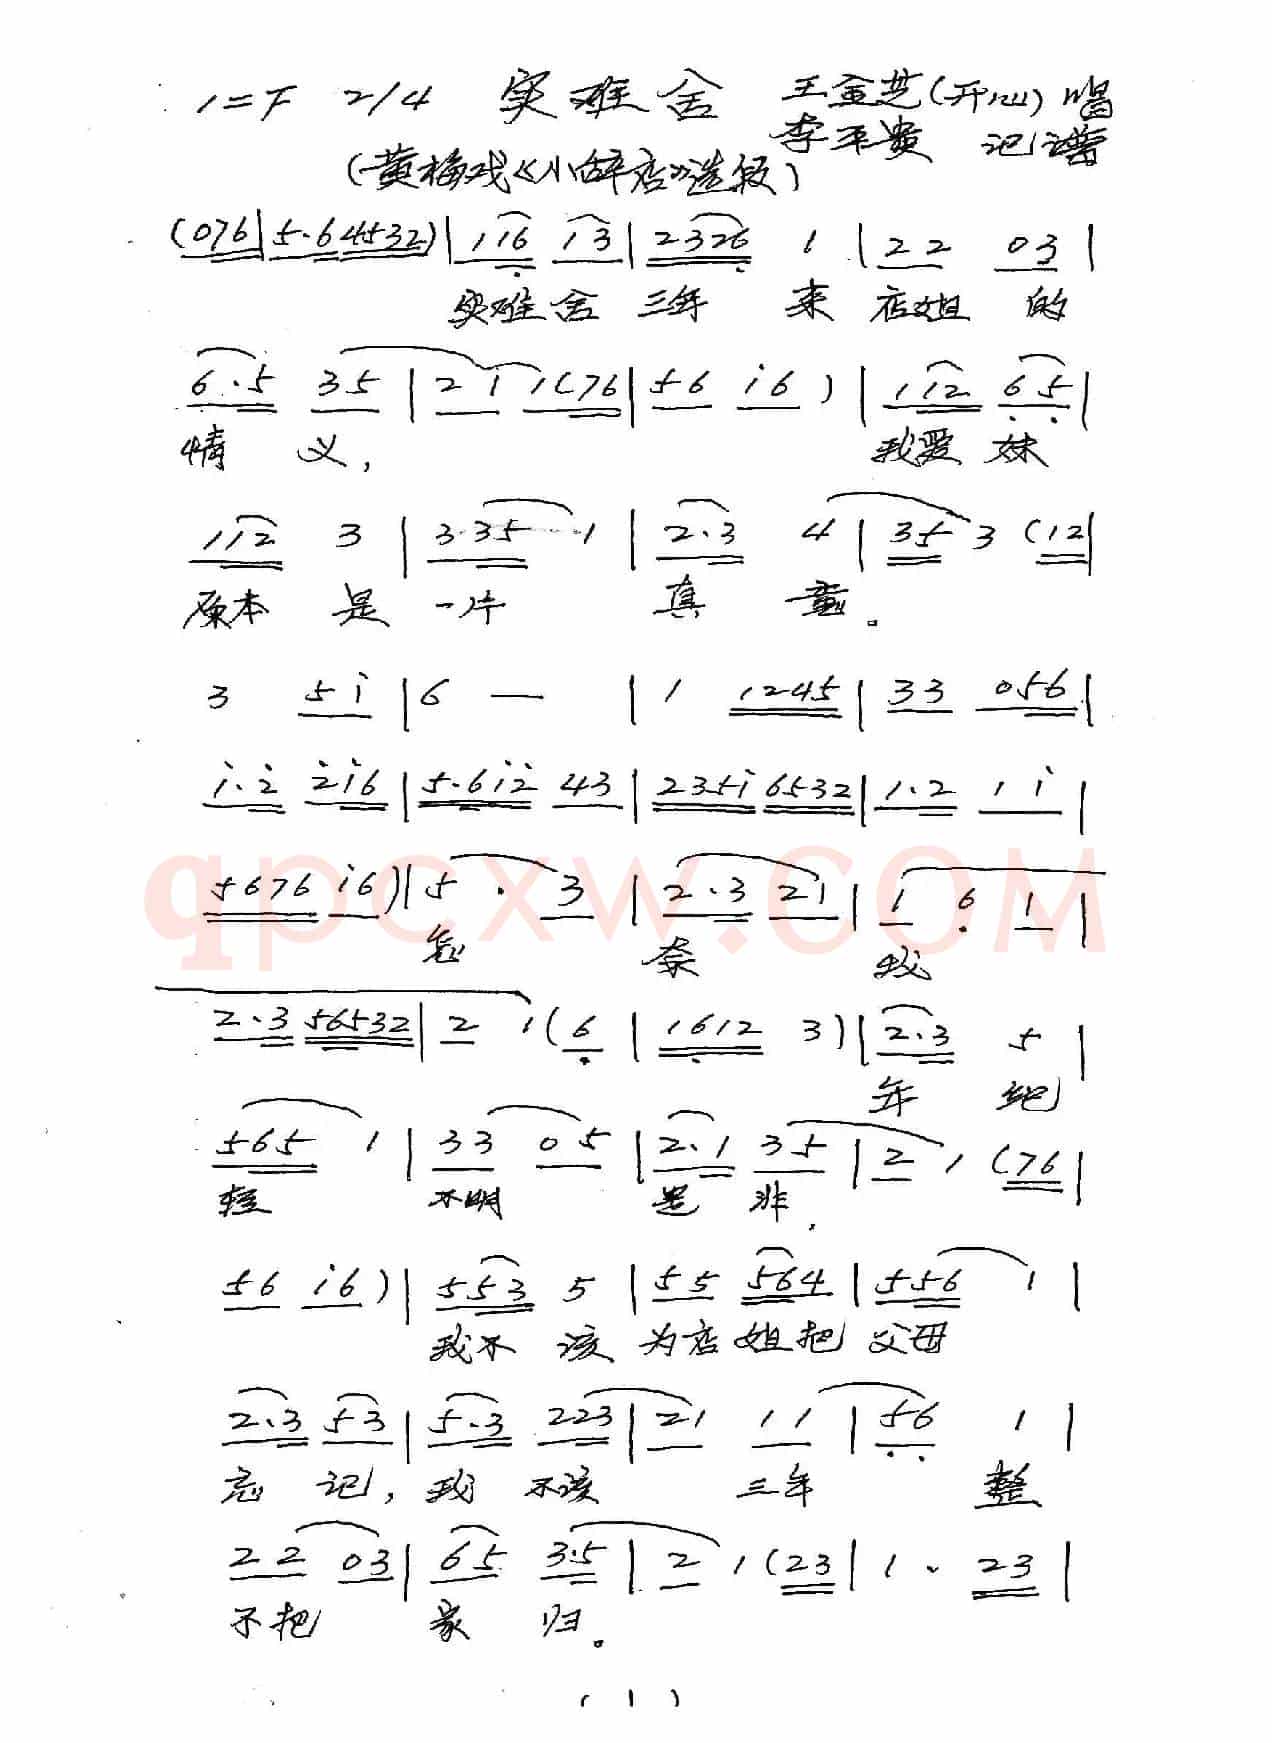 1=F 2/4 实难舍 王金芝(开心)唱
李平贵 记谱
(黄梅戏《小辞店》选段)
(076|5.64532)|116 13|2326 1|22 03|
实难舍 三年 来 店姐 的
6.5 35|21 1(76|56 i6)|112 65|
情 义, 我爱 妹
112 3|3.35 1|2.3 4|35 3 (12|
原本 是 一片 真 意。
3 5i|6 —|1 1245|33 056|
i.2̇ 2̇i6|5.6i2̇ 43|235i 6532|1.2 1 i|
5676 i6)|5 . 3|2.3 21|1 6 1|
怎 奈 我
2.3 56532|2 1(6|1612 3)|2.3 5|
年 纪
565 1|33 05|2.1 35|2 1 (76|
轻 不明 是 非,
56 i6)|553 5|55 564|556 1|
我不 该 为店 姐把 父母
2.3 53|5.3 223|21 11|56 1|
忘 记, 我 不该 三年 整
22 03|65 3.5|2 1(23|1. 23|
不把 家 归。
(1)
qpcxw.COM